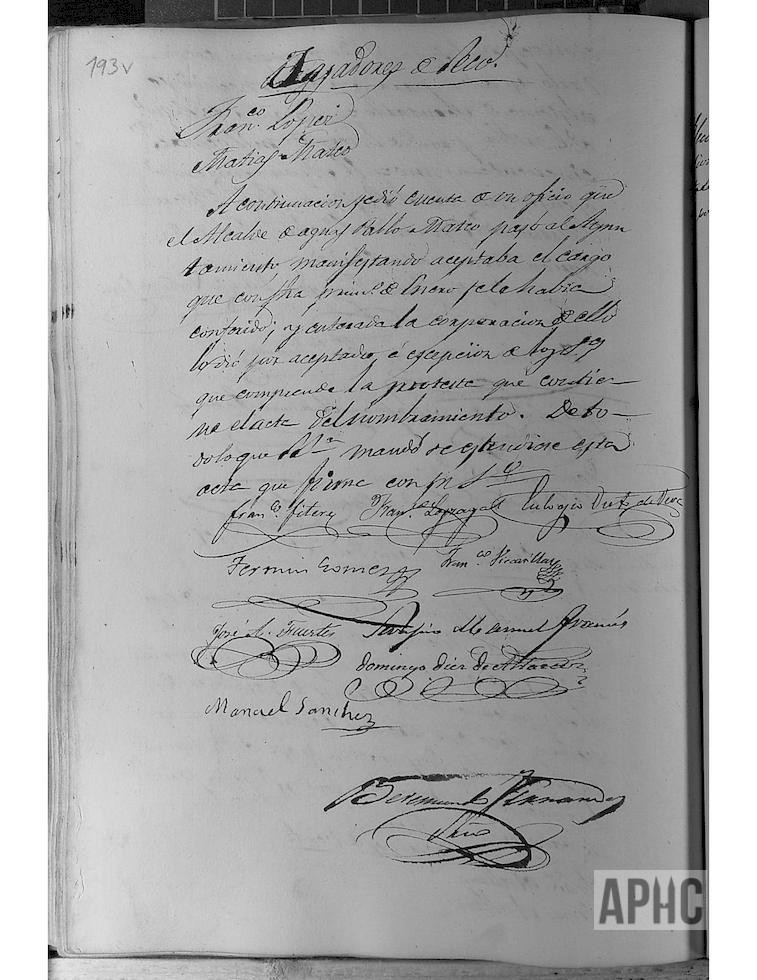 193v
Tajadores de Seco.
Fran.co Lopez
Matias Mateo
A continuacion se dió cuenta de un oficio que
el Alcalde de aguas Pablo Mateo pasó al Ayun
tamiento, manifestando aceptaba el cargo
que con fha prim.o de Enero se le habia
conferido; y enterada la corporacion de ello
lo dió por aceptado, á escepcion de los
que comprende la protesta que contie-
ne el acta del nombramiento. De to-
do lo que mandó se estendiese esta
acta que firma con
Fran.co Fitero Fran.co Eulogio Diez de
Fermin Gomez Fran.co
José M. Fuertes Manuel
Domingo Diez de
Manuel Sanchez
Beremundo Fernandez
Srio
APHC